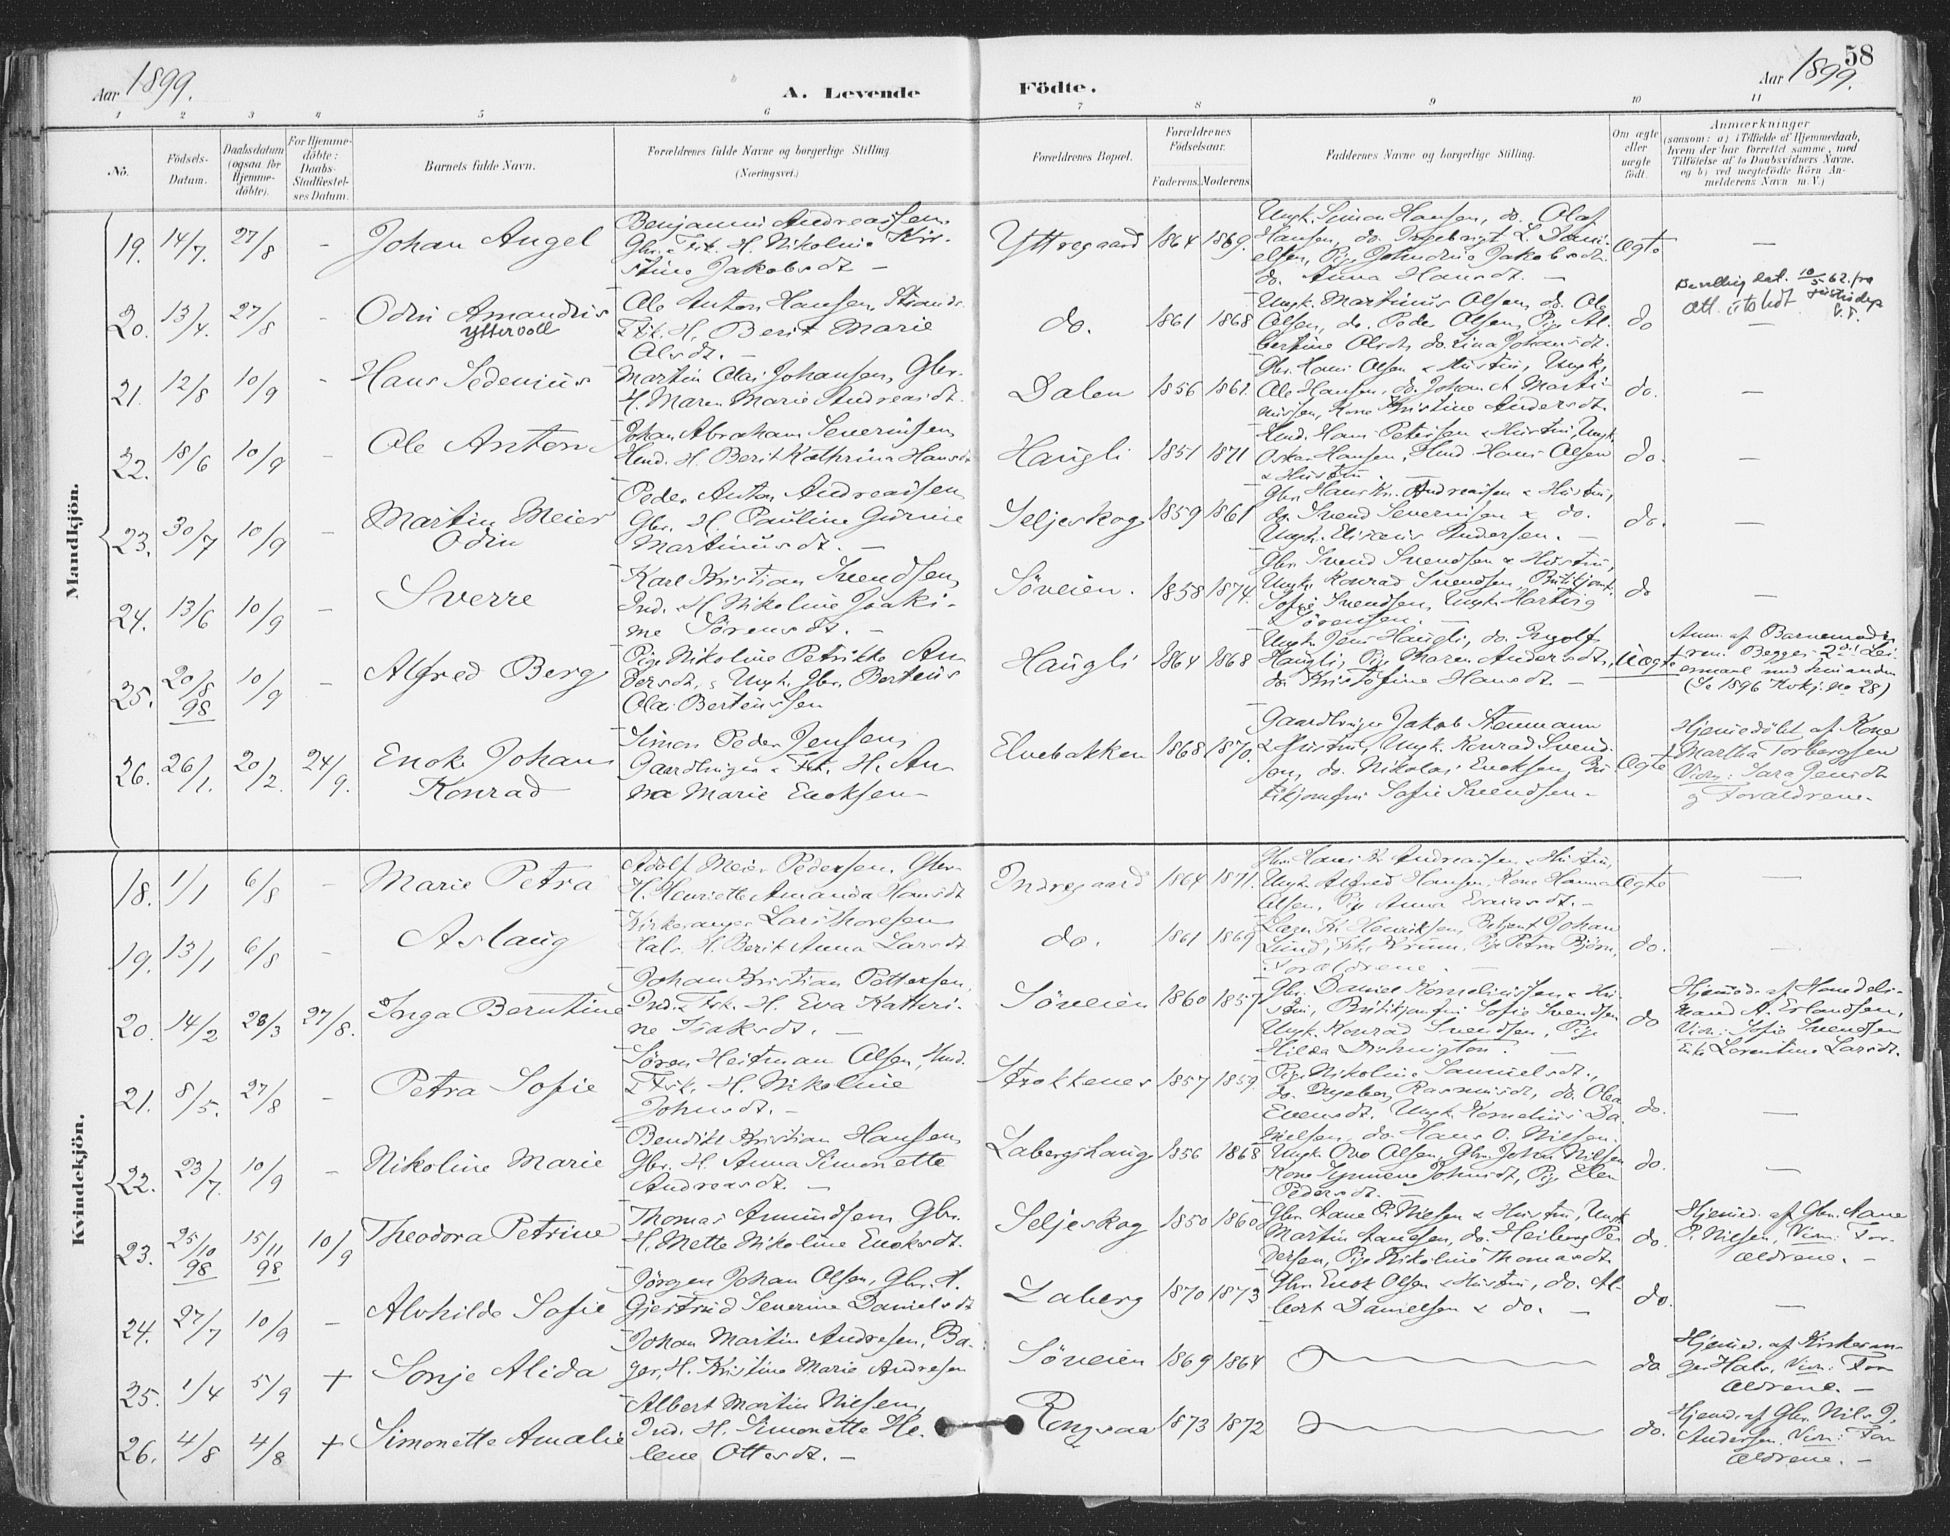 58
Aar 1899.
A. Levende Födte.
Aar 1899.
1 2 3 4 5 6 7 8 9 10 11
No.
Födsels-Datum.
Daabsdatum (ogsaa for Hjemmedöbte).
For Hjemmedöbte: Daabs-Stadfæstelses Datum.
Barnets fulde Navn.
Forældrenes fulde Navne og borgerlige Stilling. (Næringsvei.)
Forældrenes Bopæl.
Forældrenes Födselsaar.
Faderens. Moderens.
Faddernes Navne og borgerlig Stilling.
Om ægte eller uægte födt.
Anmærkninger
(saasom: a) i Tilfælde af Hjemmedaab, hvem der har forrettet samme, med Tilföielse af to Daabsvidners Navne, og b) ved uegtefödte Börn Anmelderens Navn m. V.)
Mandkjön.
19. 14/7. 27/8 - Johan Angel
Benjamin Andreassen,
Gbr. Fsk. H. Nikoline Kir-
stine Jakobsdt. -
Yttregaard 1864 1869.
Ungk. Simon Hansen, do. Olaf
Hansen, do. Ingebrigt L. Dani-
elsen, Pige Johndine Jakobsdt.
do. Anna Hansdt. -
Ægte -
20. 13/4. 27/8 - Odin Amandus
Yttervoll
Ole Anton Hansen, Strands.
Fsk. H. Berit Marie
Olsdt. -
do. 1861 1868
Ungk. Martinus Olsen, do. Ole
Olsen, do. Peder Olsen, Pige Al-
bertine Olsdt, do. Lina Johansdt.
do
10/5 62. fra
att. utstedt
-
21. 12/8 10/9 - Hans Sedenius
Martin Olai Johansen, Gbr.
H. Maren Marie Andreasdt.
Dalen 1856 1861.
Gbr. Hans Olsen & Hustru, Ungk.
Ole Hansen, do. Johan A. Marti-
nussen, Kone Kristine Andersdt.
do. -
22. 18/6 10/9 - Ole Anton
Johan Abraham Severinsen
Hmd. H. Berit Kathrina Hansdt
Haugli 1851 1871
Hmd. Hans Petersen & Hustru, Ungk.
Oskar Hansen, Hmd. Hans Olsen
& Hustru
do. -
23. 30/7 10/9 - Martin Meier
Odin
Peder Anton Andreassen
Gbr. H. Pauline Gurine
Martinusdt. -
Seljeskog 1859 1861
Gbr. Hans Kr. Andreassen & Hustru,
do. Svend Severinsen & do.
Ungk. Elisæus Andersen. -
do. -
24. 13/6 10/9 - Sverre
Karl Kristian Svendsen
Ind. H. Nikoline Joaki-
me Sörensdt. -
Söveien. 1858 1874.
Gbr. Svend Svendsen & Hustru,
Ungk. Konrad Svendsen, Butikjomf.
Sofie Svendsen, Ungk. Hartvig
Sörensen. -
do -
25. 20/8 98 10/9 - Alfred Berg
Pige Nikoline Petrikke An-
dersdt. & Ungk. Gbr. Berteus
Olai Berteussen
Haugli 1864 1868
Ungk. Jens Haugli, do. Ingolf
Haugli, Pige Maren Andersdt.,
do. Kristofine Hansdt. -
Uægte
Anm. af Barnemode-
ren. Begges 2det Lei-
ermaal med hinanden
(Se 1896 Kvkj. no 28)
26. 26/1. 20/2. 24/9. Enok Johan
Konrad
Simon Peder Jensen
Gaardbruger & Fsk. H. An-
na Marie Enoksen -
Elvebakken 1868 1870.
Gaardbruger Jakob Stenmann
& Hustru, Ungk. Konrad Svend-
sen, do. Nikolai Enoksen, Bu-
tikjomfru Sofie Svendsen. -
Ægte
Hjemmedöbt af Kone
Martha Torbergsen
Vidn: Sara Jensdt
og Forældrene. -
Kvindekjön.
18. 1/1 6/8 - Marie Petra
Adolf Meier Pedersen, Gbr.
H. Henriette Amanda Hansdt
Indregaard 1864 1871.
Gbr. Hans Kr. Andreassen & Hustru,
Ungk. Alfred Hansen, Kone Hanna
Olsen, Pige Anna Evardsdt. -
Ægte -
19. 13/1 6/8 - Aslaug
Kirkesanger Lars Thoresen
Hals. H. Berit Anna Larsdt
do. 1861 1869
Henriksen, Betjent Johan
Lund, Pige Petra Björn,
Forældrene. -
do. -
20. 14/2 26/3 27/8. Inga Berntine
Johan Kristian Pettersen,
Ind. & Fsk. H. Eva Kathri-
ne Isaksdt. -
Söveien 1860 1857
Gbr. Daniel Korneliussen & Hu-
stru, Butikjomfru Sofie Svendsen
Ungk. Konrad Svendsen, Pige
Hilda Dishington. -
do
Hjemmed. af Handels-
mand A. Erlandsen,
Vidn: Sofie Svendsen
Enke Lorentine Larsdt.
21. 8/5. 27/8 - Petra Sofie
Sören Heitman Olsen, Hmd.
& Fsk. H. Nikoline
Johnsdt. -
Strokkenes 1857 1859.
Pige Nikoline Samuelsdt.,
do. Ingeborg Rasmusdt, do. Olea
Evensdt. Ungk. Kornelius Da-
nielsen, do. Hans O. Nilsen.
do. -
22. 23/7. 10/9 - Nikoline Marie
Bendikt Kristian Hansen
Gbr. H. Anna Simonette
Andreasdt. -
Labergshaug 1856 1868
Ungk. Ove Olsen, Gbr. Johan Nilsen
Kone Johnsdt, Pige Elen
Pedersdt. -
do. -
23. 25/10 98 15/11 98 10/9 Theodora Petrine
Thomas Amundsen Gbr.
H. Mette Nikoline Enoksdt.
Seljeskog 1850 1860
Gbr. Aane P. Nielsen & Hustru, Ungk
Martin Hansen, do. Heiberg Pe-
dersen, Pige Nikoline Thomasdt.
do.
Hjemmed. af Gbr. Aane
P. Nielsen, Vidn: For-
ældrene. -
24. 27/7 10/9 - Alvhilde Sofie
Jörgen Johan Olsen, Gbr. H.
Gjertrud Severine Danielsdt
Laberg 1870 1873
Gbr. Enok Olsen & Hustru, do. Al-
bert Danielsen & do. -
do. -
25. 1/4 5/9 + Sonje Alida
Johan Martin Andresen, Ba-
ger, H. Kristine Marie Andresen
Söveien 1869 1864
do.
Hjemmed. af Kirkesan-
ger Hals, Vidn: For-
ældrene. -
26. 4/8 4/8 + Simonette Amalie
Albert Martin Nilsen,
Ind. H. Simonette He-
lene Ottesdt. -
Rongsaa 1873 1872
do.
Hjemd. af Gbr. Nils J.
Andersen. Vidn: For-
ældrene. -